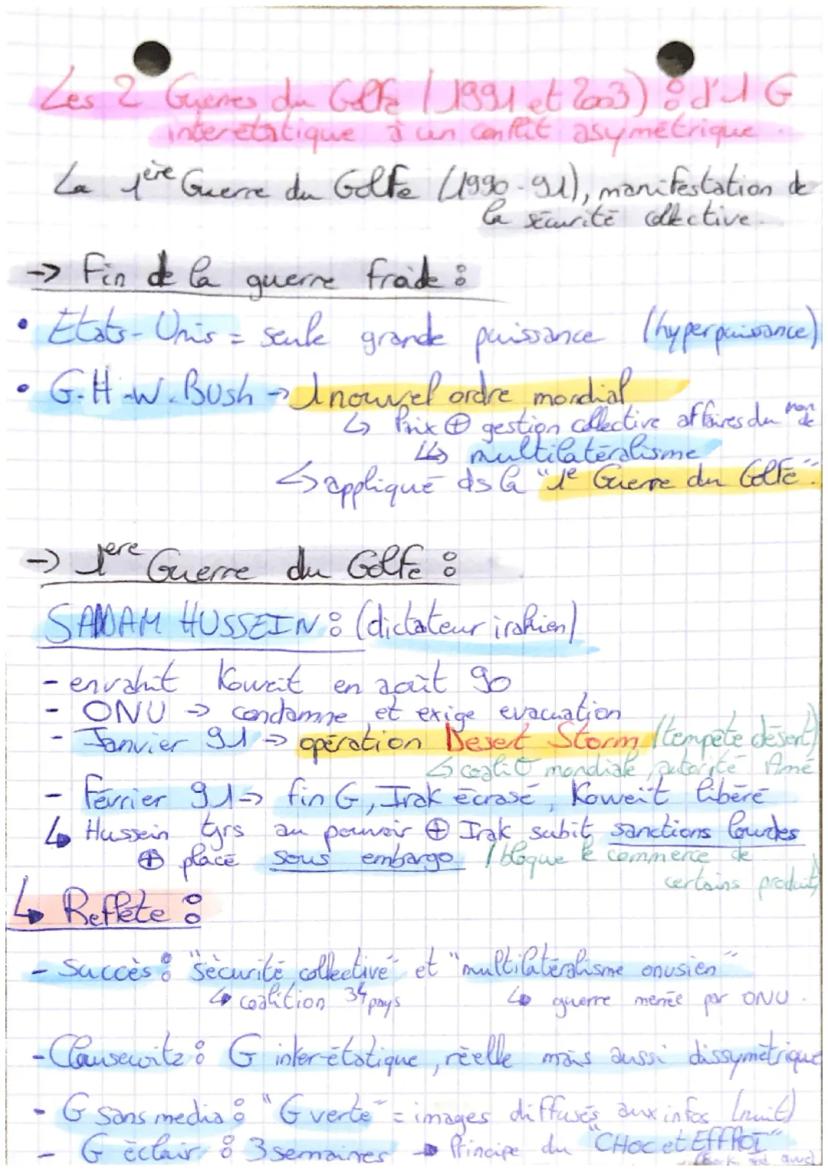 Les 2 Guerres du Golfe (1991 et 2003) : d'1 G
interétatique à un conflit asymétrique.
La 1ère Guerre du Golfe (1990-91), manifestation de
la sécurité collective.
-> Fin de la guerre froide :
• Etats-Unis = seule grande puissance (hyperpuissance)
• G.H.W.Bush -> 1 nouvel ordre mondial
↳ Paix ⊕ gestion collective affaires du monde
↳ multilatéralisme
↳ appliqué ds la "1e Guerre du Golfe".
-> 1ere Guerre du Golfe :
SADAM HUSSEIN : (dictateur irakien)
- envahit Koweit en août 90
- ONU -> condamne et exige evacuation
- Janvier 91 -> opération Desert Storm (tempête désert)
↳ coalit° mondiale, autorité Amé
- Février 91 -> fin G, Irak écrasé, Koweït libéré
↳ Hussein tjrs au pouvoir ⊕ Irak subit sanctions lourdes
⊕ placé sous embargo (bloque le commerce de
certains produits)
↳ Reflète :
- Succès : "sécurité collective" et "multilatéralisme onusien"
↳ coalition 34 pays ↳ guerre menée par ONU.
- Clausewitz : G inter-étatique, réelle mais aussi dissymétrique
- G sans media : "G verte" = images diffusés aux infos (nuit)
- G éclair : 3 semaines -> Principe du "CHOC et EFFROI"